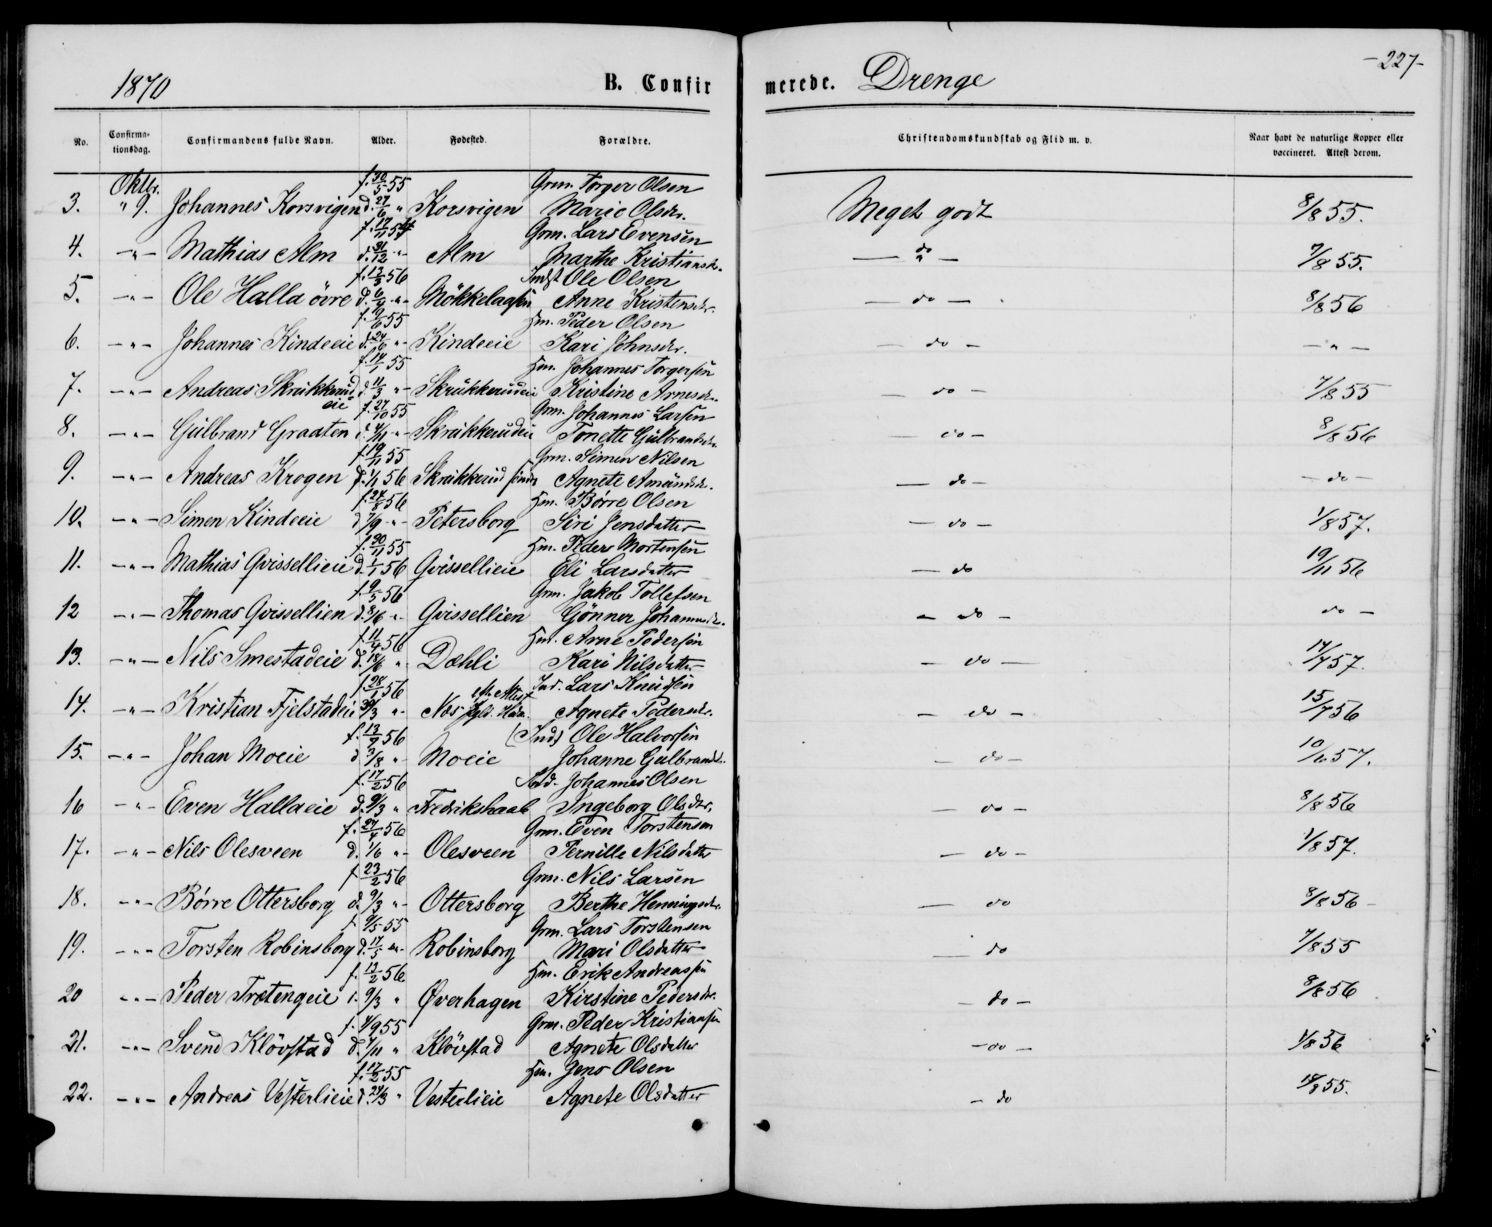 1870 B. Confirmerede. Drenge -227-
No. Confirmationsdag. Confirmandens fulde Navn. Alder. Fødested. Forældre. Christendomskundskab og Flid m. v. Naar havt de naturlige Kopper eller vaccineret. Attest derom.
Oktbr. f. 30/5 55 Grm. Torger Olsen
3. " 9. Johannes Korsvigen d. 27/6 " Korsvigen Marie Olsdr. Meget godt 8/8 55.
f. 17/11 54 Grm. Lars Evensen
4. -"- Mathias Alm d. 31/12 -"- Alm Marthe Kristiansdr. — do — 7/8 55.
56 Indst Ole Olsen
5. -"- Ole Halla övre -"- Anne Kristensdr. — do — 8/8 56
55 Hm. Peder Olsen
6. -"- Johannes Kindeeie -"- Kindeeie Kari Johnsdr. — do — -"-
f. 14/1 55 Hm. Johannes Torgersen
7. -"- Andreas Skrukkerud eie d. 11/3 -"- Skrukkerudeie Kristine Arnesdr. — do — 7/8 55
f. 27/10 55 Grm. Johannes Larsen
8. -"- Gulbrand Graaten -"- Skrukkerudeie Tonette Gulbrandsdr. — do — 8/8 56
f. 19/11 55 Grm. Simen Nilsen
9. -"- Andreas Krogen d. 1/1 56 Skrukkerud Agnete Amundsdr. — do — — do —
f. 24/8 56 Hm. Børre Olsen
10. -"- Simen Kindeeie d. 7/9 -"- Petersborg Siri Jensdatter — do — 1/8 57.
f. 30/11 55 Hm. Peder Mortensen
11. -"- Mathias Qvissellieie d. 1/1 56 Qvissellieie Eli Larsdatter — do 19/11 56
f. 9/5 56 Grm. Jakob Tollefsen
12 -"- Thomas Qvissellien d. 8/6 " Qvissellien Gönner Johannesdr. — do — do —
f. 11/4 56 Hm. Arne Pedersen
13. -"- Nils Smestadeie d. 18/6 " Dæhli Kari Nilsdatter — do — 14/7 57.
f. 28/1 56 Ind. Lars Knudsen
14. -"- Kristian Fjelstadeie 30/3 " Næs Agnete Pedersdr. — do — 15/7 56
56 (Inds) Ole Halvorsen
15. -"- Johan Moeie d. 3/8 " Moeie Johanne Gulbrandsdr. — do — 10/6 57.
f. 17/2 56 Johannes Olsen
16 -"- Even Hallaeie d. 9/3 " Fredrikshaab Ingeborg Olsdtr. — do — 8/8 56
f. 27/4 56 Grm. Even Torstensen
17. -"- Nils Olesveen d. 1/6 " Olesveen Pernille Nilsdatter — do — 1/8 57.
f. 23/2 56 Grm. Nils Larsen
18. -"- Børre Ottersborg d. 9/3 " Ottersborg Berthe Henningsdr. — do 8/8 56
f. 9/5 55 Grm. Lars Torstensen
19. -"- Torsten Robinsborg d. 17/5 " Robinsborg Mari Olsdatter — do 7/8 55
f. 13/2 56 Hm. Erik Andreassen
20 -"- Peder Trætengeie 9/3 " Øverhagen Kirstine Pedersdr. — do — 8/8 56
f. 4/9 55 Grm. Peder Kristiansen
21. -"- Svend Klövstad d. 4/11 " Klövstad Agnete Olsdatter — do — 4/8 56
f. 17/2 55 Hm. Jens Olsen
22. -"- Andreas Vesterlieie d. 24/3 " Vesterlieie Agnete Olsdatter — do 55.